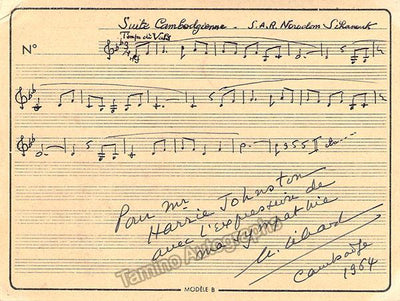 Suite Cambodgienne - S.A.R. Norodom Sihanouk
Tempo di Valse
N°
Pour Mr
Harrie Johnston
avec l'expression de
ma sympathie
Cambodge
1964
Tamino Autographs
MODÈLE B